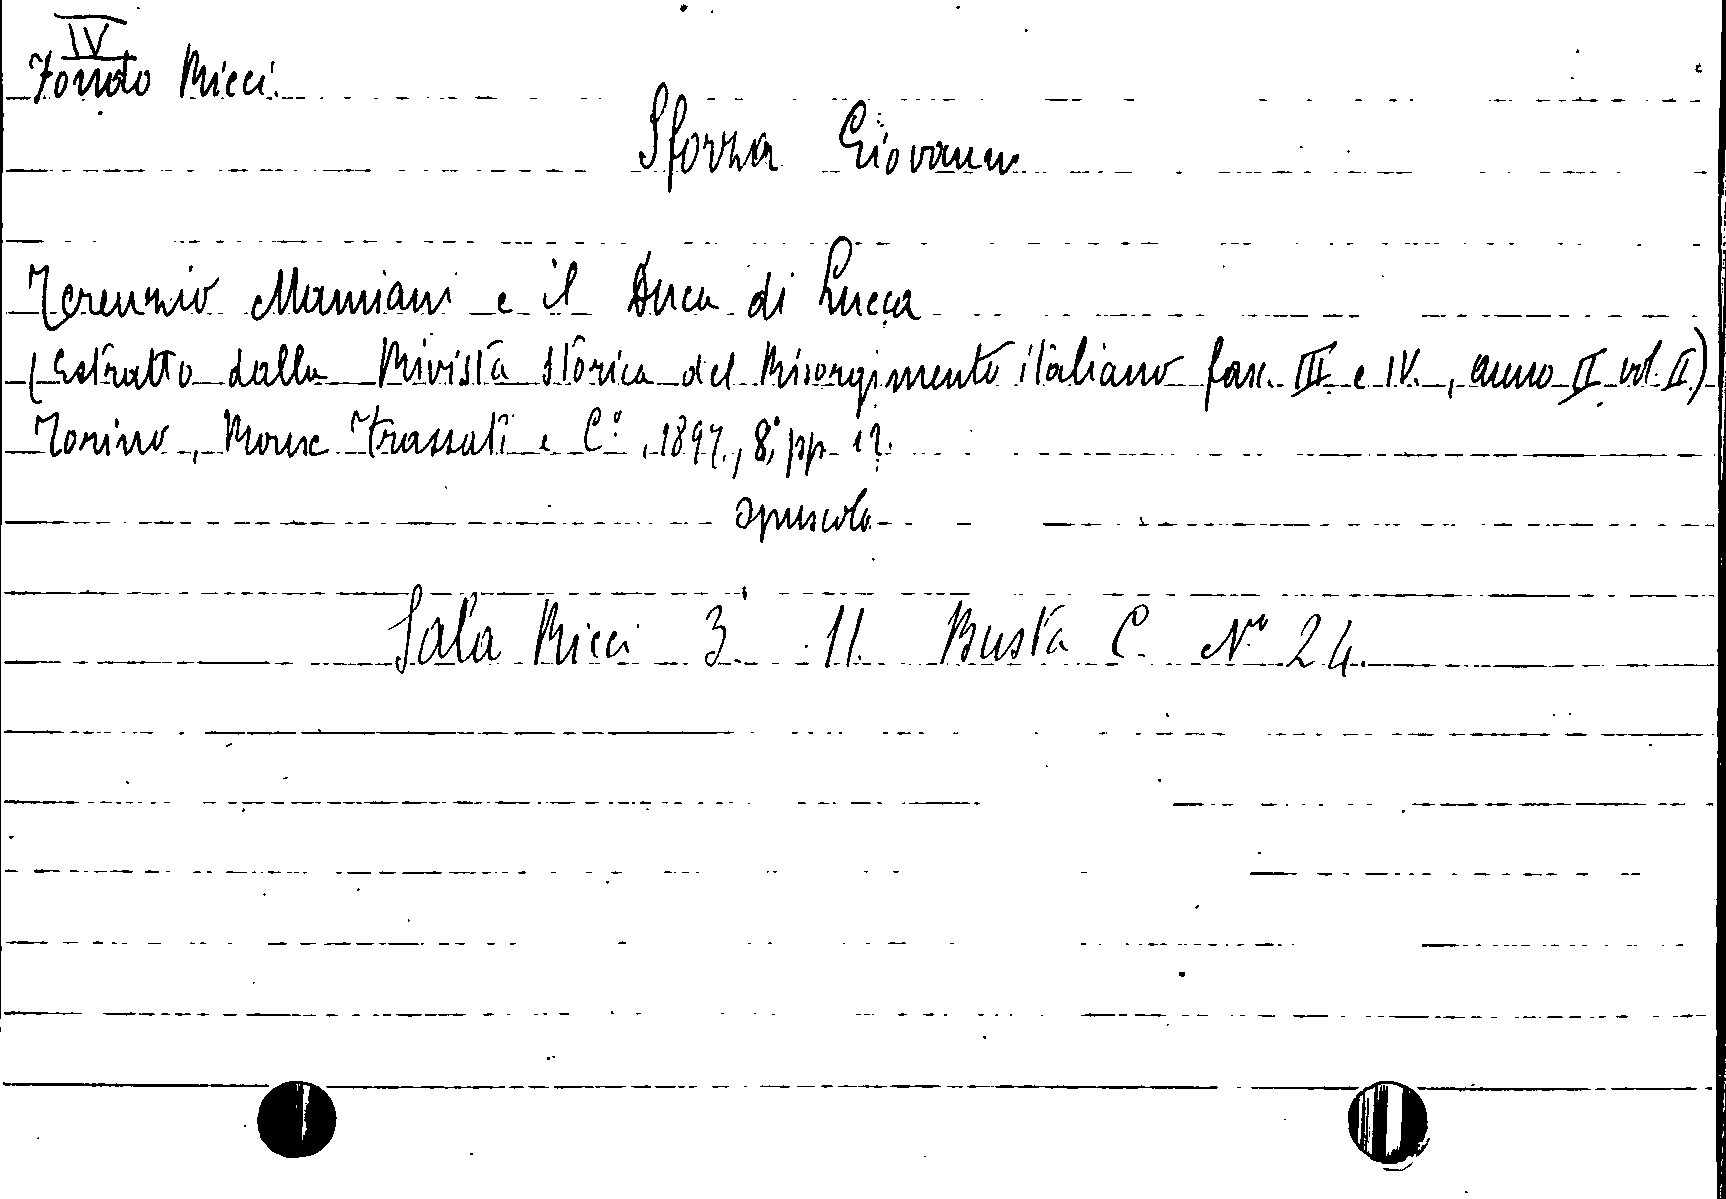 IV
Fondo Ricci.
Sforza Giovanni
Terenzio Mamiani e il Duca di Lucca
(Estratto dalla Rivista storica del Risorgimento italiano fasc. III e IV., anno II vol. II)
Torino, Roux Frassati e Cº. 1897., 8º, pp. 12.
opuscolo
Sala Ricci 3. 11. Busta C. Nº 24.